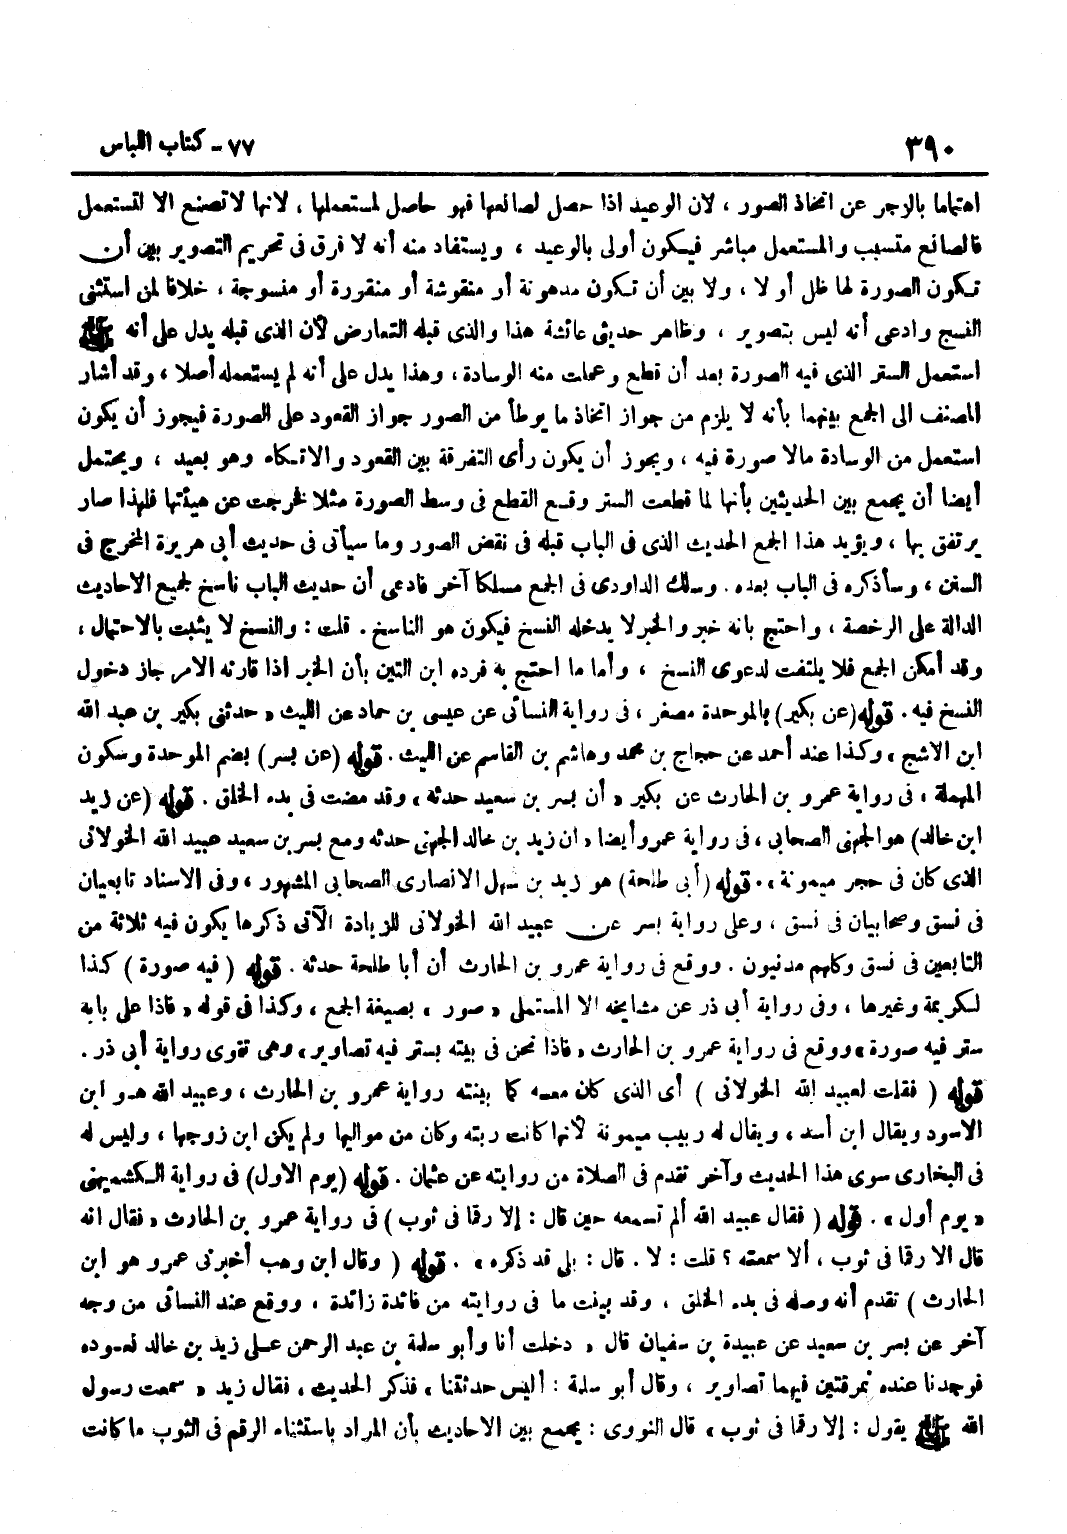 ٣٩٠
٧٧ - كتاب اللباس
اهتماما بالزجر عن اتخاذ الصور ، لان الوعيد اذا حصل لصانعها فهو حاصل لمستعملها ، لانها لا تصنع الا لتستعمل
فالصانع متسبب والمستعمل مباشر فيكون أولى بالوعيد ، ويستفاد منه أنه لا فرق فى تحريم التصوير بين أن
تكون الصورة لها ظل أو لا ، ولا بين أن تكون مدهونة أو منقوشة أو منقورة أو منسوجة ، خلافا لمن استثنى
النسج وادعى أنه ليس بتصوير ، وظاهر حديثى عائشة هذا والذى قبله التعارض لأن الذى قبله يدل على أنه ﷺ
استعمل الستر الذى فيه الصورة بعد أن قطع وعملت منه الوسادة ، وهذا يدل على أنه لم يستعمله أصلا ، وقد أشار
المصنف الى الجمع بينهما بأنه لا يلزم من جواز اتخاذ ما يوطأ من الصور جواز القعود على الصورة فيجوز أن يكون
استعمل من الوسادة مالا صورة فيه ، ويجوز أن يكون رأى التفرقة بين القعود والاتكاء وهو بعيد ، ويحتمل
أيضا أن يجمع بين الحديثين بأنها لما قطعت الستر وقع القطع فى وسط الصورة مثلا فخرجت عن هيئتها فلهذا صار
يرتفق بها ، ويؤيد هذا الجمع الحديث الذى فى الباب قبله فى نقض الصور وما سيأتى فى حديث أبى هريرة المخرج فى
السنن ، وسأذكره فى الباب بعده . وسلك الداودى فى الجمع مسلكا آخر فادعى أن حديث الباب ناسخ لجميع الاحاديث
الدالة على الرخصة ، واحتج بانه خبر والخبر لا يدخله النسخ فيكون هو الناسخ . قلت : والنسخ لا يثبت بالاحتمال ،
وقد أمكن الجمع فلا يلتفت لدعوى النسخ ، وأما ما احتج به فرده ابن التين بأن الخبر اذا قارنه الامر جاز دخول
النسخ فيه . قوله (عن بكير) بالموحدة مصغر ، فى رواية النسائى عن عيسى بن حماد عن الليث « حدثنى بكير بن عبد الله
ابن الاشج » وكذا عند أحمد عن حجاج بن محمد وهاشم بن القاسم عن الليث . قوله (عن بسر) بضم الموحدة وسكون
المهملة ، فى رواية عمرو بن الحارث عن بكير « أن بسر بن سعيد حدثه » وقد مضت فى بدء الخلق . قوله (عن زيد
ابن خالد) هو الجهنى الصحابى ، فى رواية عمرو أيضا « ان زيد بن خالد الجهنى حدثه ومع بسر بن سعيد عبيد الله الخولانى
الذى كان فى حجر ميمونة » . قوله (أبى طلحة) هو زيد بن سهل الانصارى الصحابى المشهور ، وفى الاسناد تابعيان
فى نسق وصحابيان فى نسق ، وعلى رواية بسر عن عبيد الله الخولانى للزيادة الآتى ذكرها يكون فيه ثلاثة من
التابعين فى نسق وكلهم مدنيون . ووقع فى رواية عمرو بن الحارث أن أبا طلحة حدثه . قوله ( فيه صورة ) كذا
لكريمة وغيرها ، وفى رواية أبى ذر عن مشايخه الا المستملى « صور » بصيغة الجمع ، وكذا فى قوله « فاذا على بابه
ستر فيه صورة » ووقع فى رواية عمرو بن الحارث « فاذا نحن فى بيته بستر فيه تصاوير » وهى تقوى رواية أبى ذر .
قوله ( فقلت لعبيد الله الخولانى ) أى الذى كان معه كما بينته رواية عمرو بن الحارث ، وعبيد الله هو ابن
الاسود ويقال ابن أسد ، ويقال له ربيب ميمونة لأنها كانت ربته وكان من مواليها ولم يكن ابن زوجها ، وليس له
فى البخارى سوى هذا الحديث وآخر تقدم فى الصلاة من روايته عن عثمان . قوله (يوم الاول) فى رواية الكشميهنى
« يوم أول » . قوله ( فقال عبيد الله ألم تسمعه حين قال : إلا رقما فى ثوب ) فى رواية عمرو بن الحارث « فقال انه
قال الا رقما فى ثوب ، ألا سمعته ؟ قلت : لا . قال : بلى قد ذكره » . قوله ( وقال ابن وهب أخبرنى عمرو هو ابن
الحارث ) تقدم أنه وصله فى بدء الخلق ، وقد بينت ما فى روايته من فائدة زائدة ، ووقع عند النسائى من وجه
آخر عن بسر بن سعيد عن عبيدة بن سفيان قال « دخلت أنا وأبو سلمة بن عبد الرحمن على زيد بن خالد نعوده
فوجدنا عنده نمرقتين فيهما تصاوير ، وقال أبو سلمة : أليس حدثتنا ، فذكر الحديث ، فقال زيد « سمعت رسول
الله ﷺ يقول : إلا رقما فى ثوب » قال النووى : يجمع بين الاحاديث بأن المراد باستثناء الرقم فى الثوب ما كانت